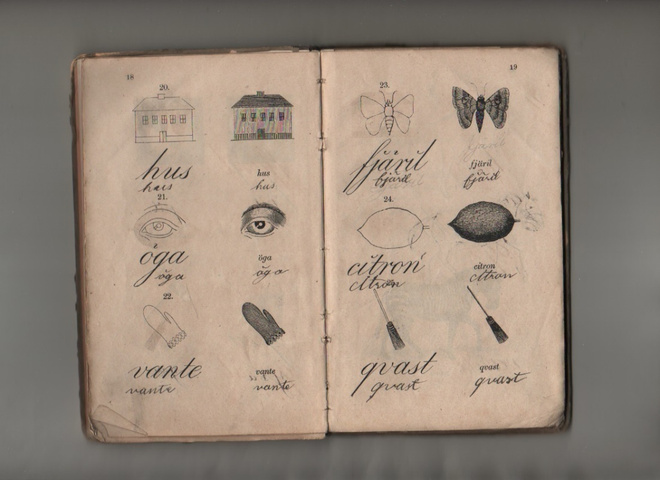 18
20.
hus
hus
hus
hus
21.
öga
öga
öga
öga
22.
vante
vante
vante
vante
19
23.
fjäril
fjäril
fjäril
fjäril
24.
citron
citron
citron
citron
qvast
qvast
qvast
qvast